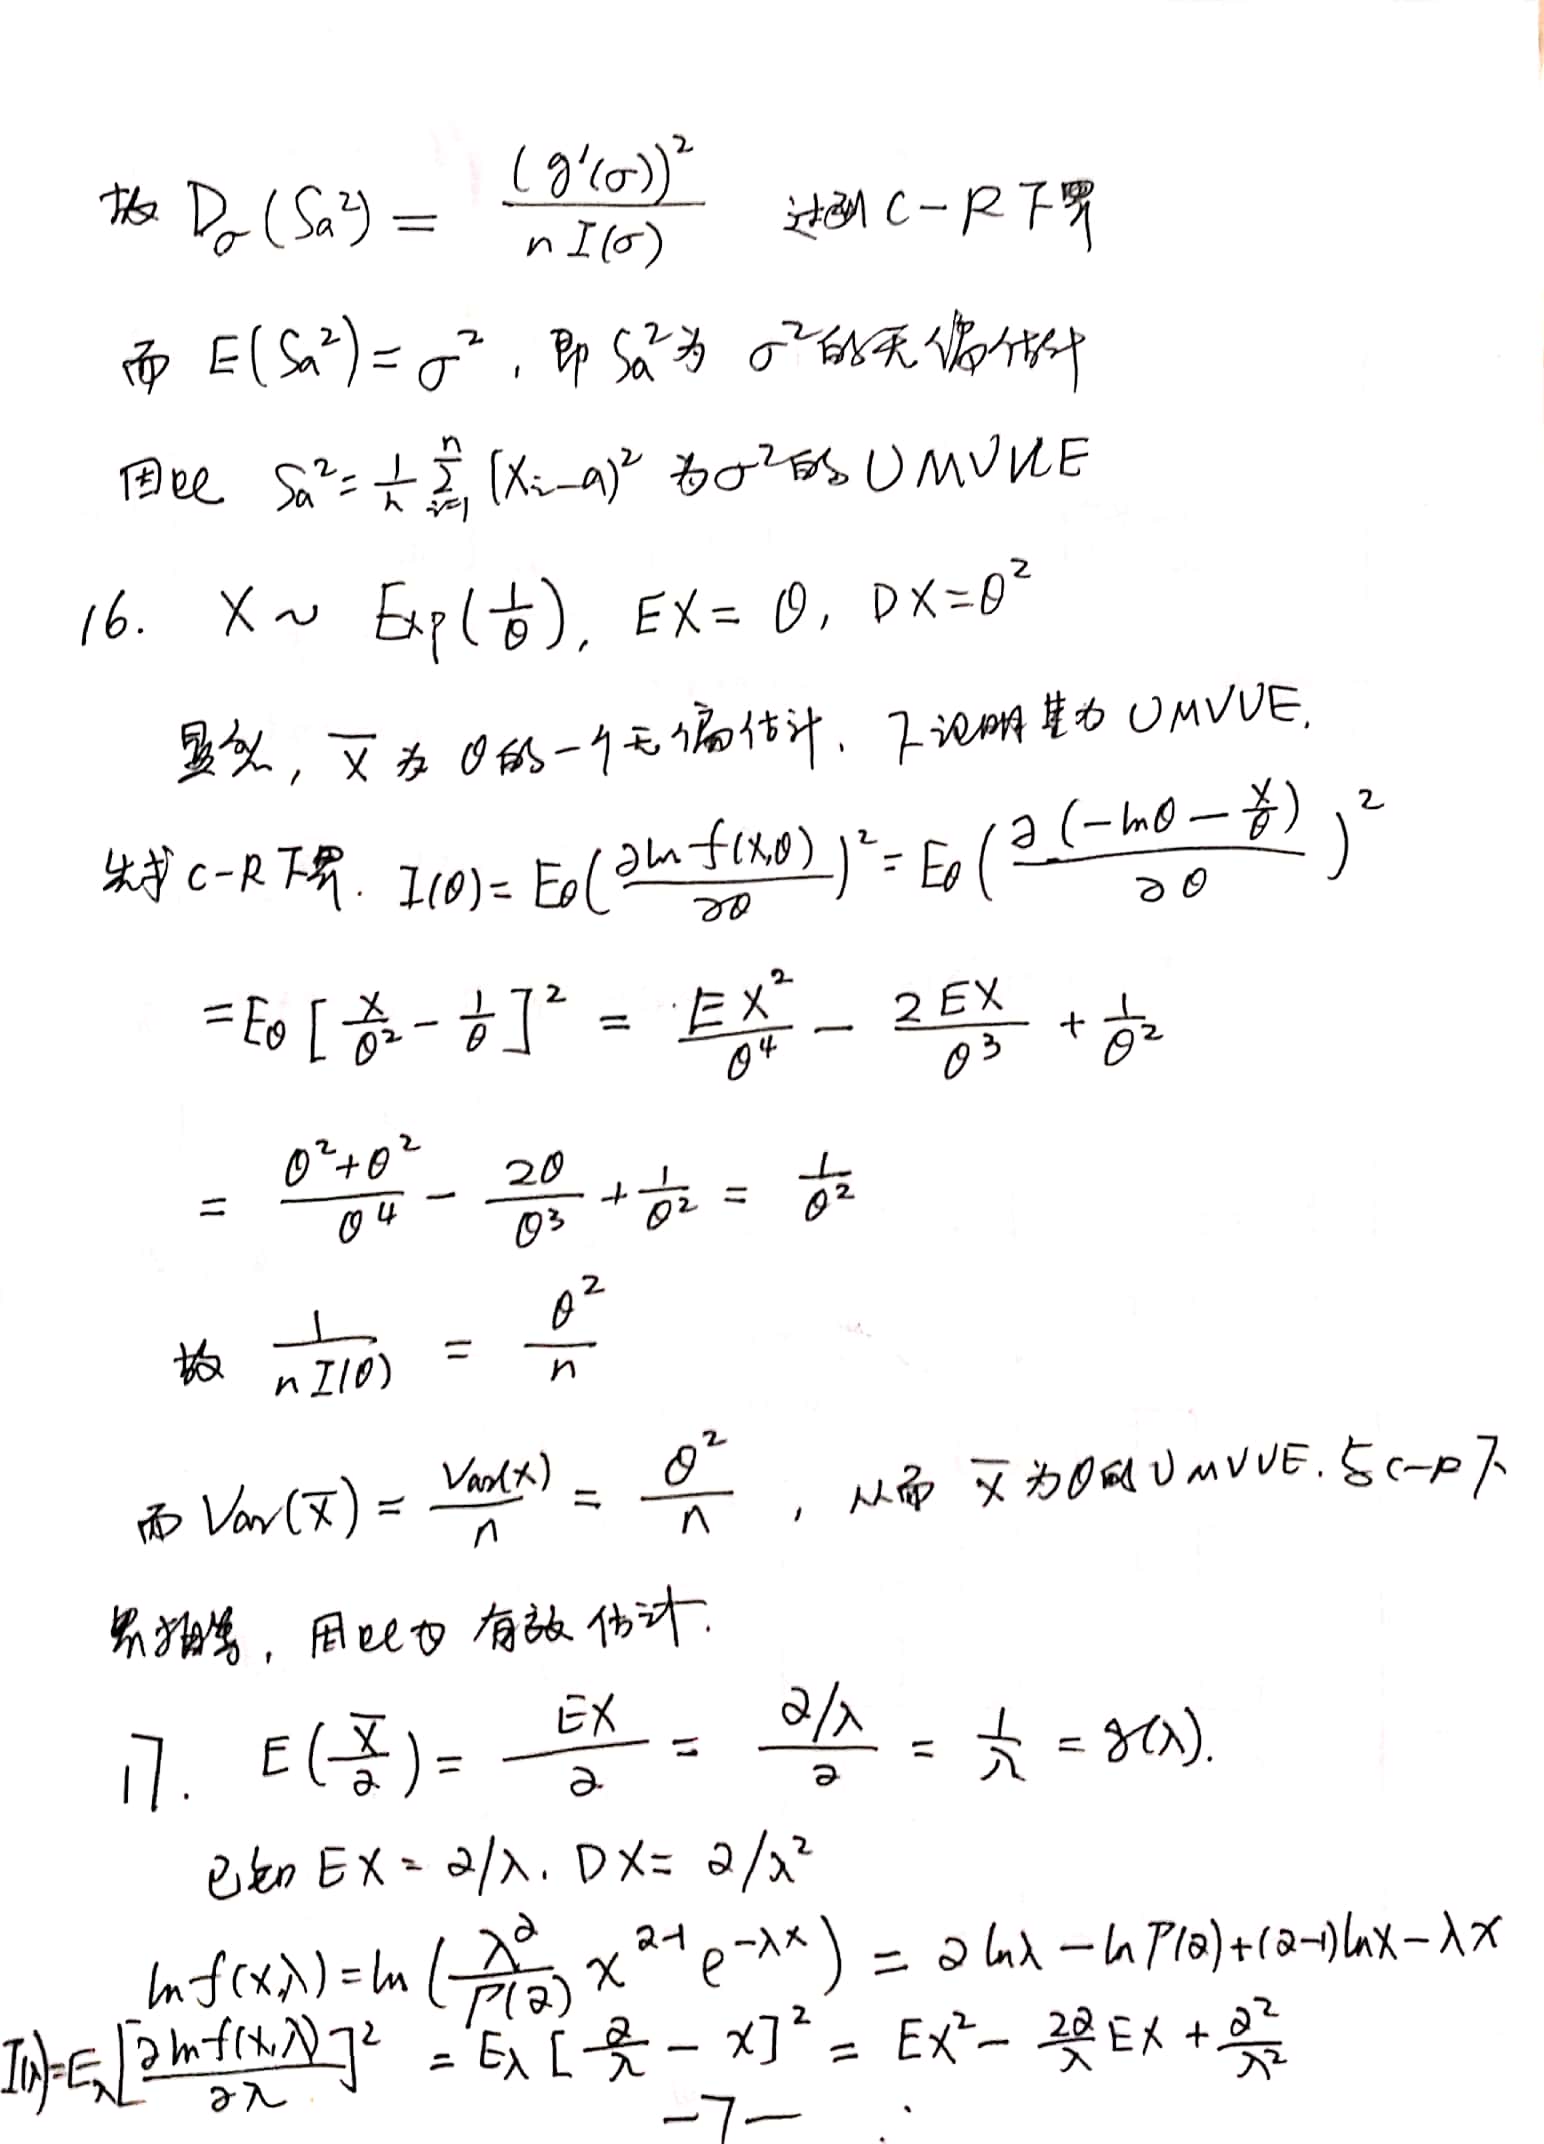 故 D_σ(Sa²) = (g'(σ))² / nI(σ) 达到C-R下界
而 E(Sa²)=σ², 即 Sa²为 σ²的无偏估计
因此 Sa²= 1/n Σ_{i=1}^{n} (Xi-a)² 为σ²的UMVUE
16. X ~ Exp(1/θ), EX = θ, DX=θ²
显然, X̄ 为 θ的一个无偏估计, 下说明其为 UMVUE.
先求C-R下界. I(θ)= Eθ(∂lnf(x,θ)/∂θ)² = Eθ(∂(-lnθ - x/θ)/∂θ)²
=Eθ[x/θ² - 1/θ]² = EX²/θ⁴ - 2EX/θ³ + 1/θ²
= (θ²+θ²)/θ⁴ - 2θ/θ³ + 1/θ² = 1/θ²
故 1/nI(θ) = θ²/n
而 Var(X̄) = Var(X)/n = θ²/n , 从而 X̄ 为θ的UMVUE. 与C-R下
界相等, 因此为 有效估计.
17. E(X̄/α) = EX/α = (α/λ)/α = 1/λ = g(λ).
已知 EX = α/λ, DX= α/λ²
lnf(x,λ) = ln(λ^α/Γ(α) x^{α-1} e^{-λx}) = αlnλ - lnΓ(α)+(α-1)lnx-λx
I(λ)=E_λ[∂lnf(x,λ)/∂λ]² = E_λ[α/λ - x]² = EX² - 2α/λ EX + α²/λ²
-7-